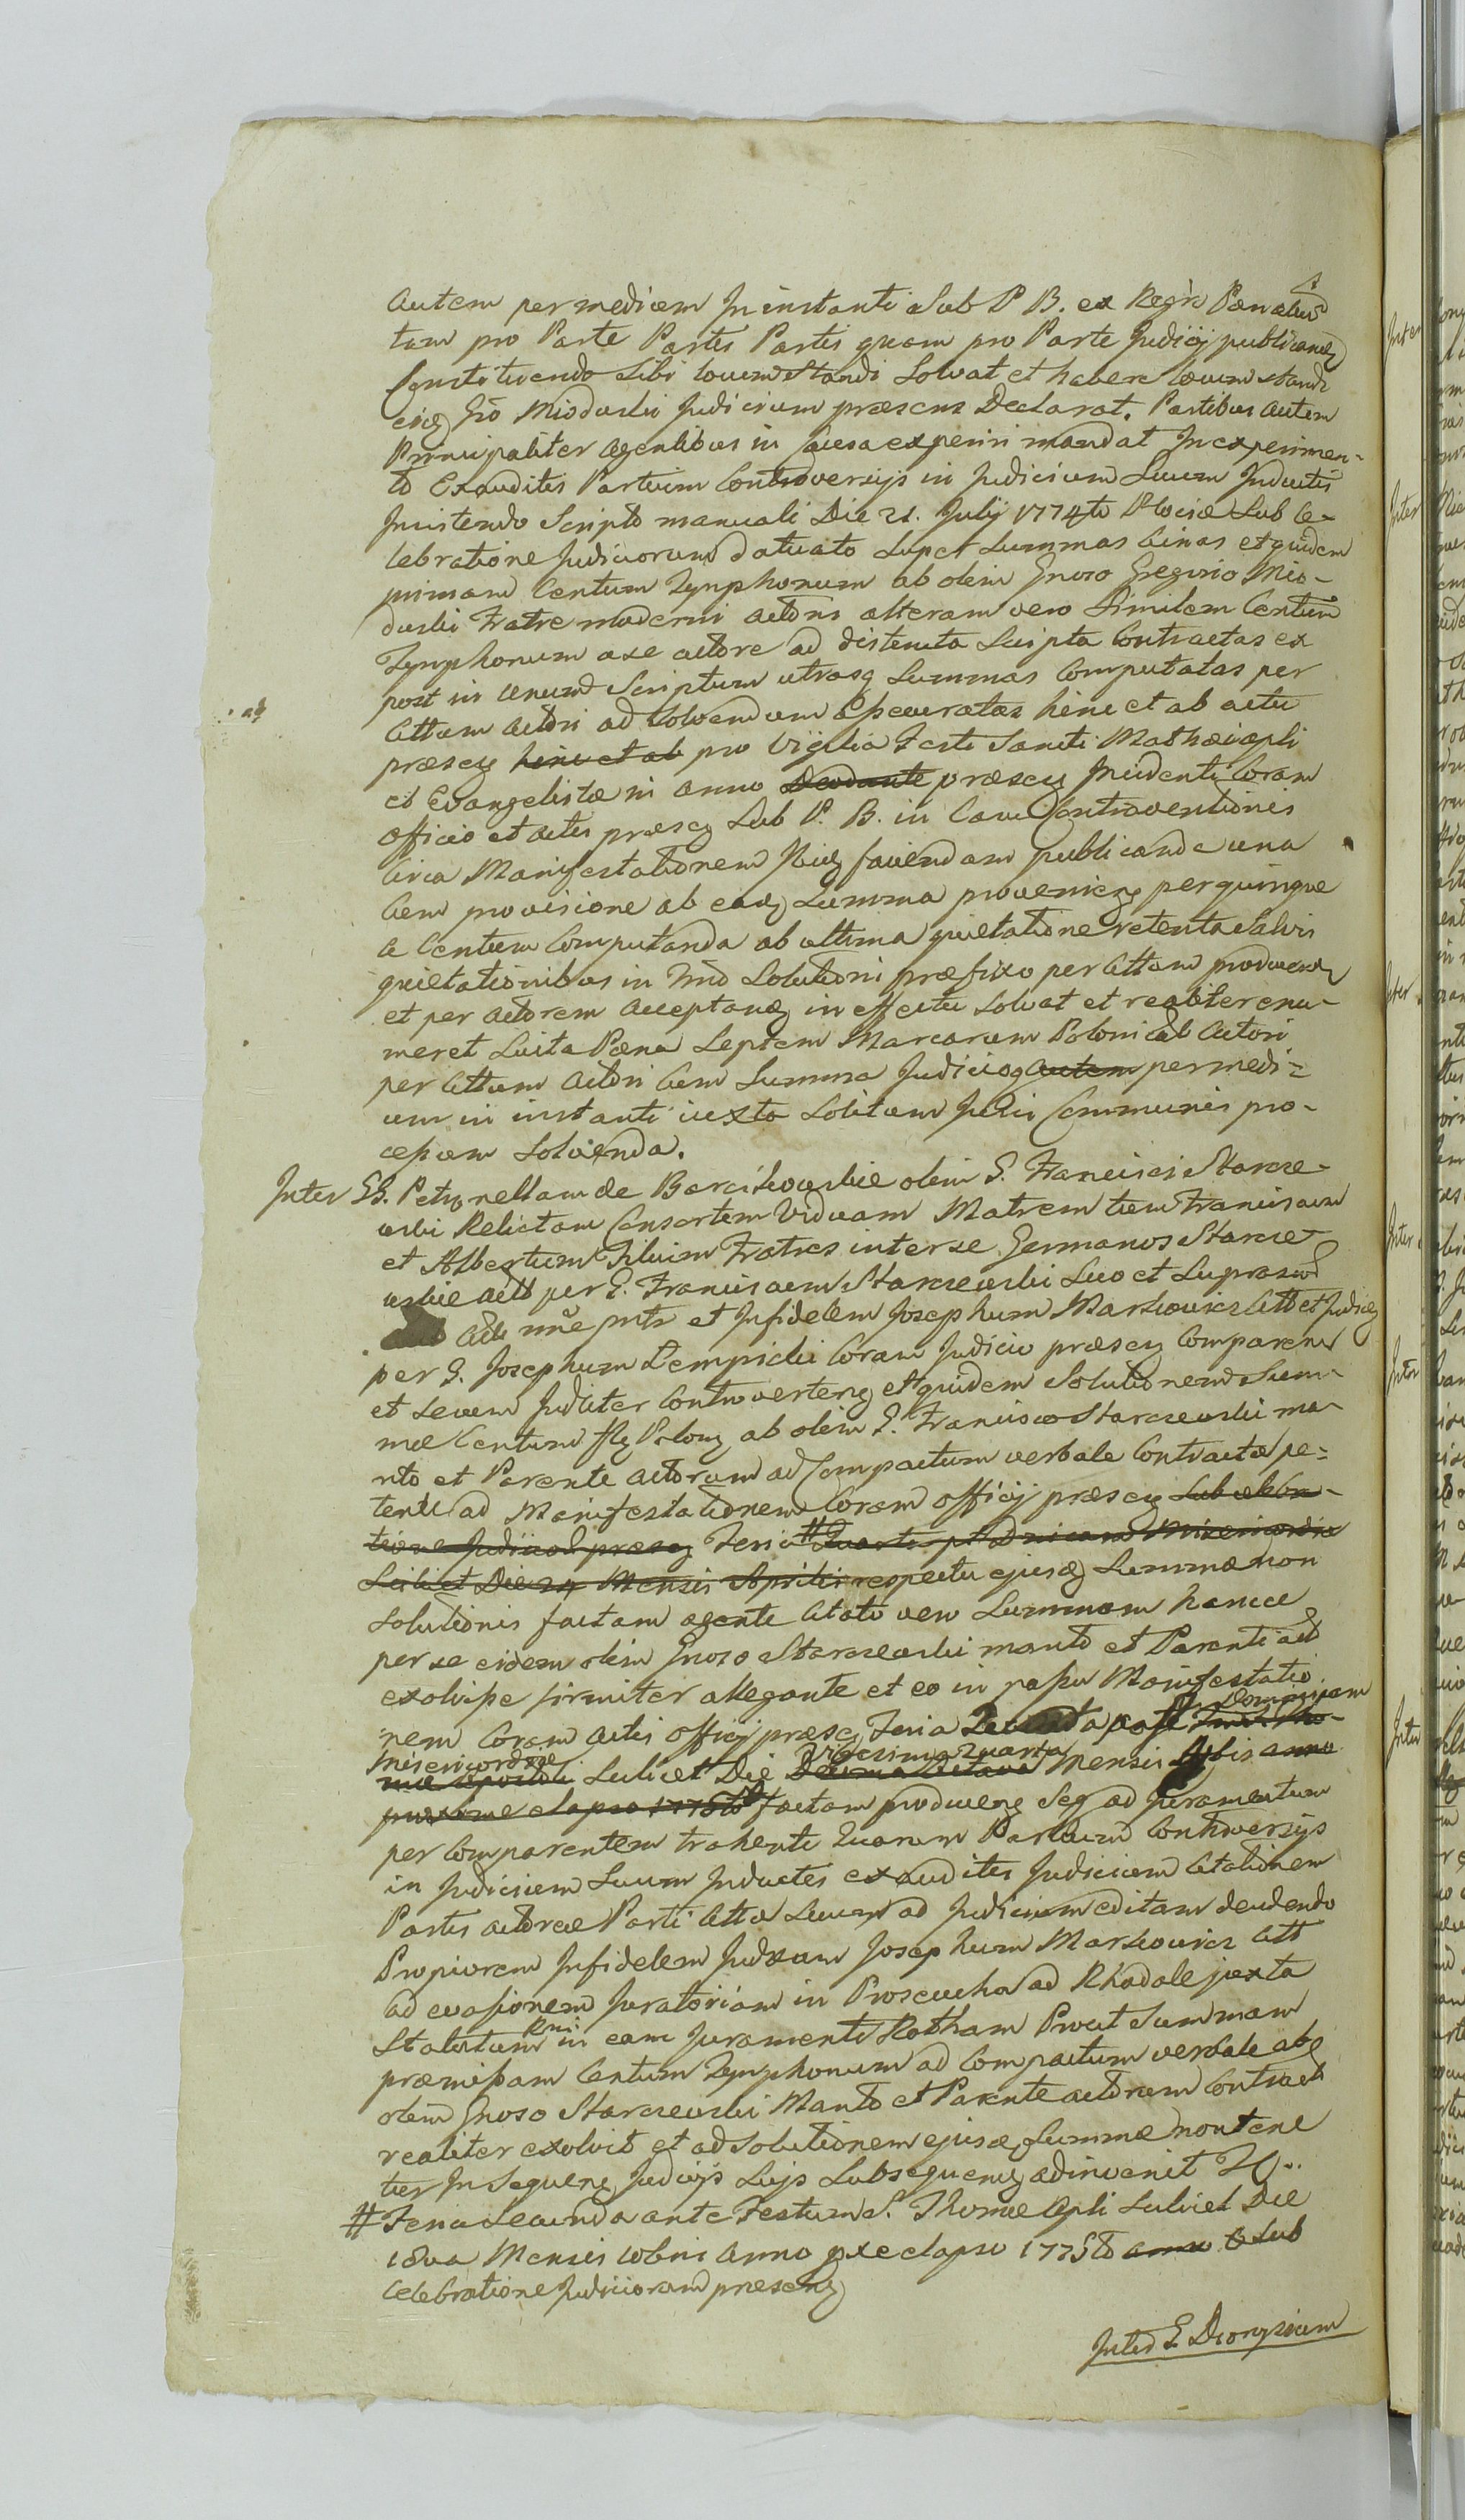 autem per mediam in instanti sub P B. ex Regro Poenalium
tam pro Parte Partis Partis quam pro Parte Judicij publicandis
Constituendo sibi locum standi Solvat et habere locum standi
eidem Gso Mioduski Judicium praesens Declarat. Partibus autem
Principaliter agentibus in Causa experiri mandat In experimen-
to Exauditis Partium Controversijs in Judicium Suum Inductis
Insistendo Scripto manuali Die 21. Julij 1774to Plociae Sub Ce-
lebratione Judiciorum datuato Super Summas binas et quidem
primam Centum Zynphonum ab olim Gnoso Gregorio Mio-
duski Fratre moderni actoris alteram vero Similem Centum
Zynphonum a se actore ad distenuta Scripta Contractas ex
post in unum Scriptum utrasq Summas Computatas per
Cittam actori ad Solvendum assecuratas hinc et ab actu
praeseq hinc et ab pro Vigilia Festi Sancti Mathaei apli
et Evangelistae in anno praeseq Incidenti Coram
officio et actis praeseq Sub P. B. in Casu Contraventionis
Circa Manifestationem faciendam publicanda una
Cum provisione ab eadq Summa provenieq per quinque
a Centum Computanda ab ultima quietatione retenta Salvis
quietationibus in Solutioni praefixo per Cittam producend
et per actorem acceptand in effectu solvat et realiter enu-
meret Luita Poena Septem Marcarum Polonical actori
per Cittam actori Cum Summa Judicioq autem per medi-
um in instanti iuxta Solitam Juris Communis pro-
cessum Solvenda.
Inter GG. Petronellam de Barcikowskie olim G. Francisci Starcze-
wski Relictam Consortem Viduam Matrem tum Franciscum
et Albertum Filium Fratres inter se Germanos Starcze-
wskie actt per G. Franciscum Starczewski Suo et Supraswd
act nne pnts et Infidelem Josephum Markowicz Citt et Judicq
per G. Josephum Dempicki Coram Judicio praeseq Comparen
et Secum Juditer Controverteng et quidem Solutionem Sum-
mae Centum fl Polong ab olim G. Francisco Starczewski ma-
rito et Parente actorum ad Compactum verbale Contractae pe-
tente ad Manifestationem Coram officij praeseq Sub celebra-
tione Judiciorl praeseq Feria # Quarta pt Dnicam Misericordiae
Scilicet Die 24 Mensis Aprilis respectu ejusq Summae non
solutionis factam agente Citato vero Summam hancce
per se eidem olim Gnoso Starczewski marito et Parenti act
exolvisse firmiter allegante et eo in passu Manifestatio-
nem Coram actis officij praeseq Feria post Dominicam
Misericordiae Scilicet Die Vigesima Quarta Mensis anno
proxime elapso 1775to factam produceng Seq ad Juramentum
per Comparentem trahenti Quarum Partium Controversijs
in Judicium Suum Inductis exauditis Judicium Citationem
Partis actoreae Parti Citta Suum ad Judicium editam deudendo
Propiorem Infidelem Judaeum Josephum Markowicz Citt
ad evasionem Juratoriam in Proseucha ad Rhodale juxta
Statutum Rni in eam juramenti Rotham Prout Summam
praemissam Centum Zynphonum ad Compactum verbale ab
olim Gnoso Starczewski Marito et Parente actorum Contract
realiter exolvit et ad solutionem ejusdq Summae non tene
tur In Sequeng Judicijs Sujs Subsequenq adinvenit
# Feria Secunda ante Festum S. Thomae Apli Scilicet Die
18va Mensis Xbris Anno pxe elapso 1775to anno to Sub
Celebratione Judiciorum praeseng
Inter G. Dionysium